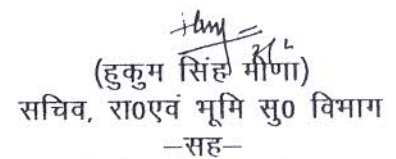 (हुकुम सिंह मीणा)
सचिव, रा०एवं भूमि सु० विभाग
–सह–